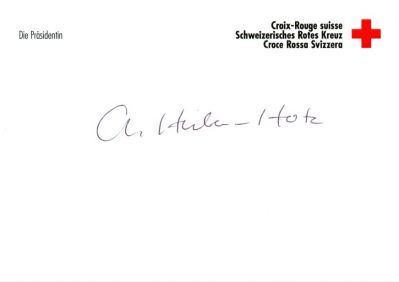 Die Präsidentin
Croix-Rouge suisse
Schweizerisches Rotes Kreuz
Croce Rossa Svizzera
A. Huber-Hotz